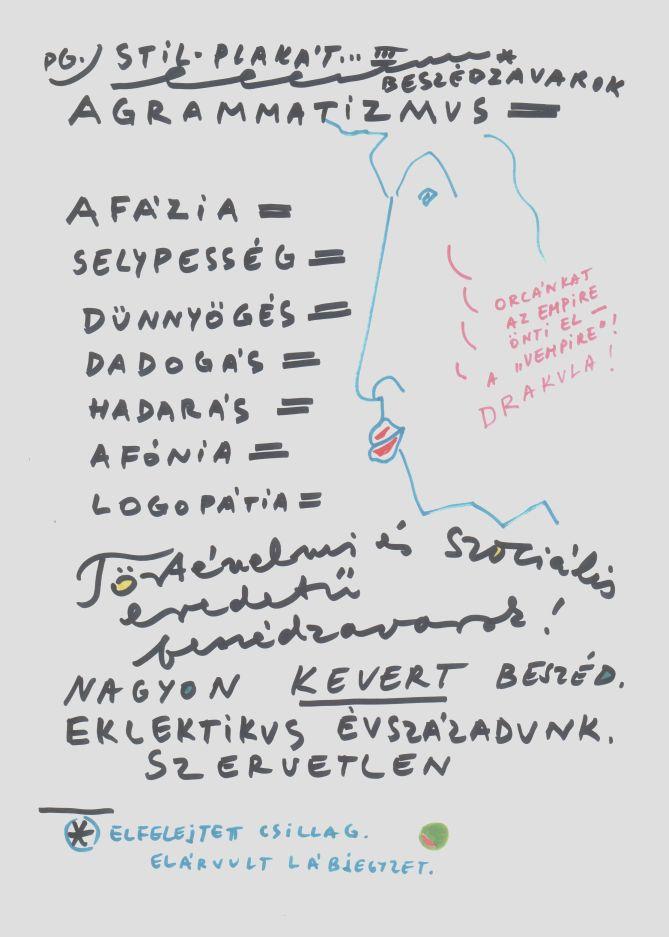 PG. STÍL-PLAKÁT... III *
BESZÉDZAVAROK
AGRAMMATIZMUS =
AFÁZIA =
SELYPESSÉG =
DÜNNYÖGÉS =
DADOGÁS =
HADARÁS =
AFÓNIA =
LOGOPÁTIA =
ORCÁNKAT
AZ EMPIRE
ÖNTI EL –
A „VEMPIRE"!
DRAKULA!
Történelmi és Szociális
eredetű
beszédzavarok!
NAGYON KEVERT BESZÉD.
EKLEKTIKUS ÉVSZÁZADUNK.
SZERVETLEN
* ELFELEJTETT CSILLAG.
ELÁRVULT LÁBJEGYZET.